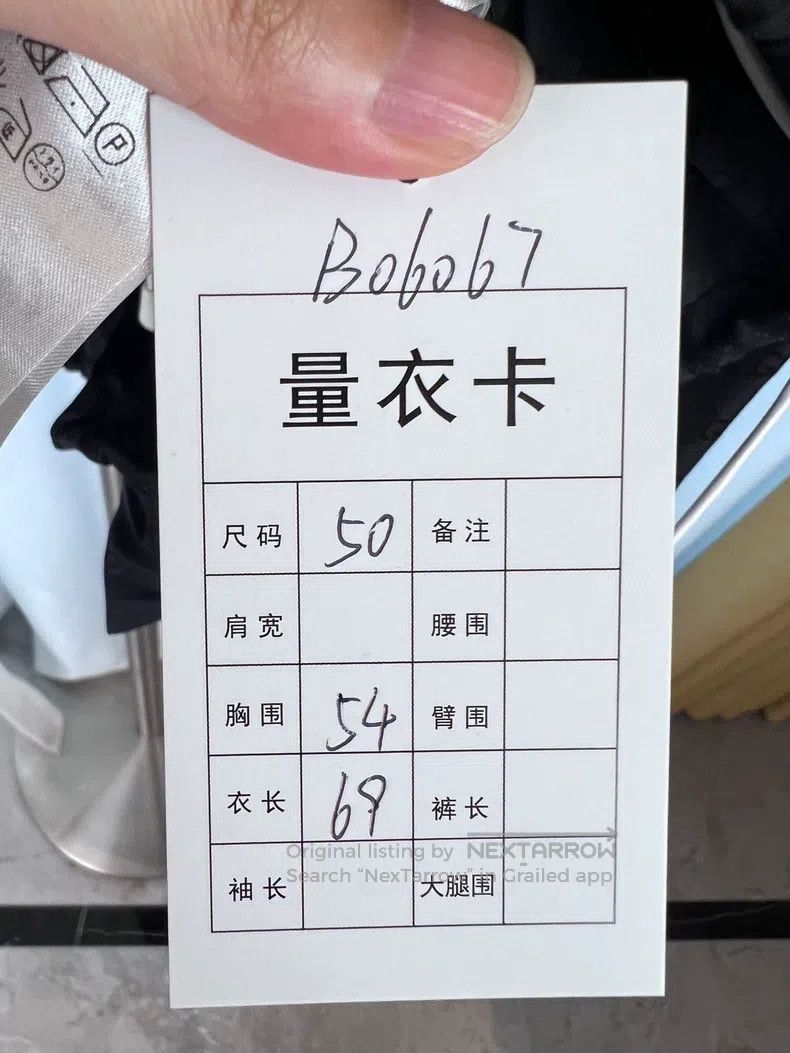 B06067
量衣卡
尺码 50 备注
肩宽 腰围
胸围 54 臂围
衣长 69 裤长
袖长 大腿围
Original listing by NEXTARROW
Search "NexTarrow" in Grailed app
P